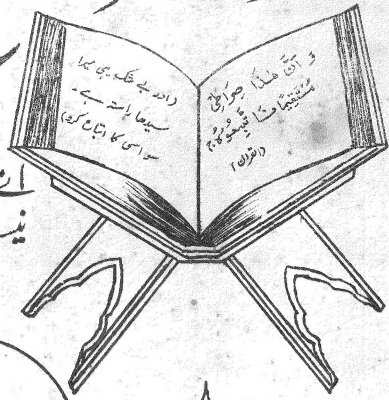 وَ اَنَّ هٰذَا صِرَاطِیْ
مُسْتَقِیْمًا فَاتَّبِعُوْهُ ۚ
(القرآن)
(اور بے شک یہی میرا
سیدھا راستہ ہے۔
سو اسی کا اتباع کرو)